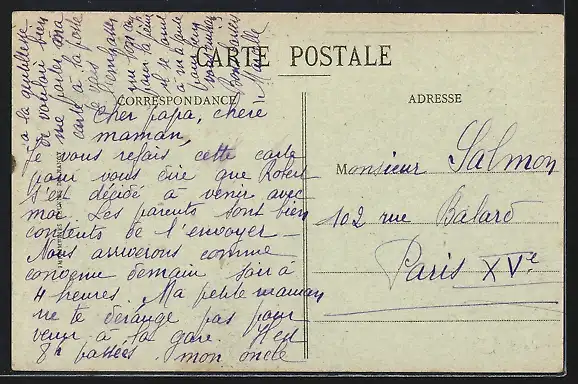 CARTE POSTALE
CORRESPONDANCE
ADRESSE
Cher papa, chère
maman,
Je vous refais cette carte
pour vous dire que Robert
s'est décidé à venir avec
moi. Les parents sont bien
contents de l'envoyer
Nous arriverons comme
convenu demain soir à
4 heures. Ma petite maman
ne te dérange pas pour
venir à la gare. Il est
8h passées. mon oncle
a la gentillesse
de vouloir bien
me porter ma
carte à la poste
Je vais
un bon
pour la
il se
Bons baisers
Monsieur Salmon
102 rue Balard
Paris XVe